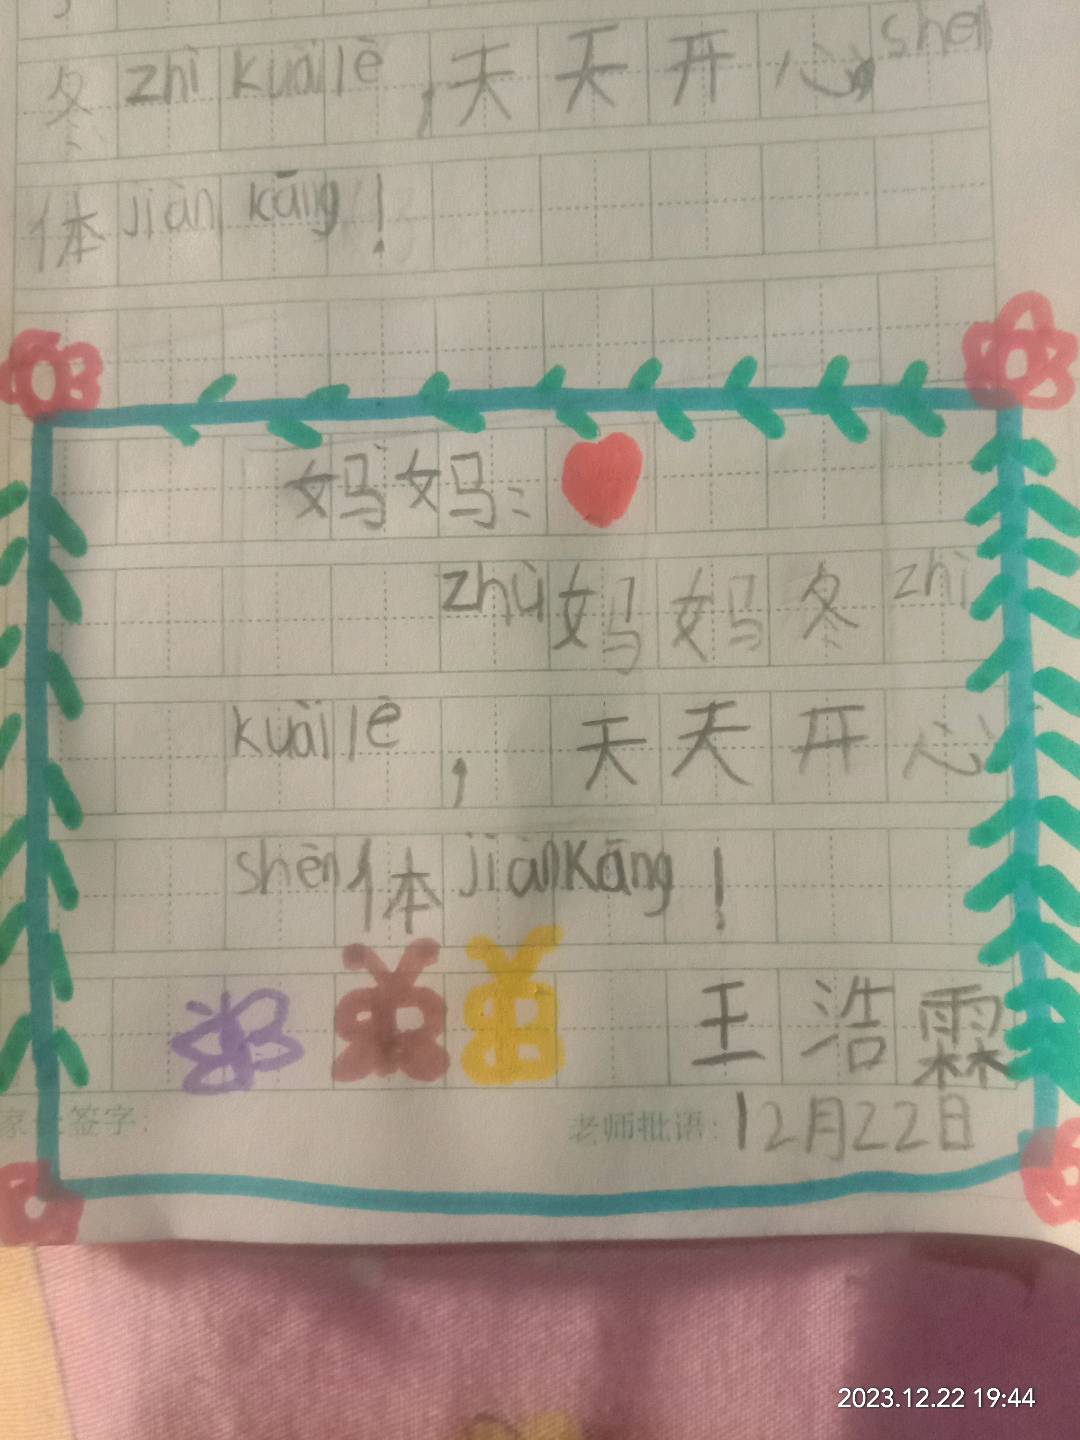 冬zhì kuài lè，天天开心，shēn
体jiàn kāng！
妈妈：
zhù妈妈冬zhì
kuài lè，天天开心
shēn体jiàn kāng！
王浩霖
家长签字：
老师批语：12月22日
2023.12.22 19:44